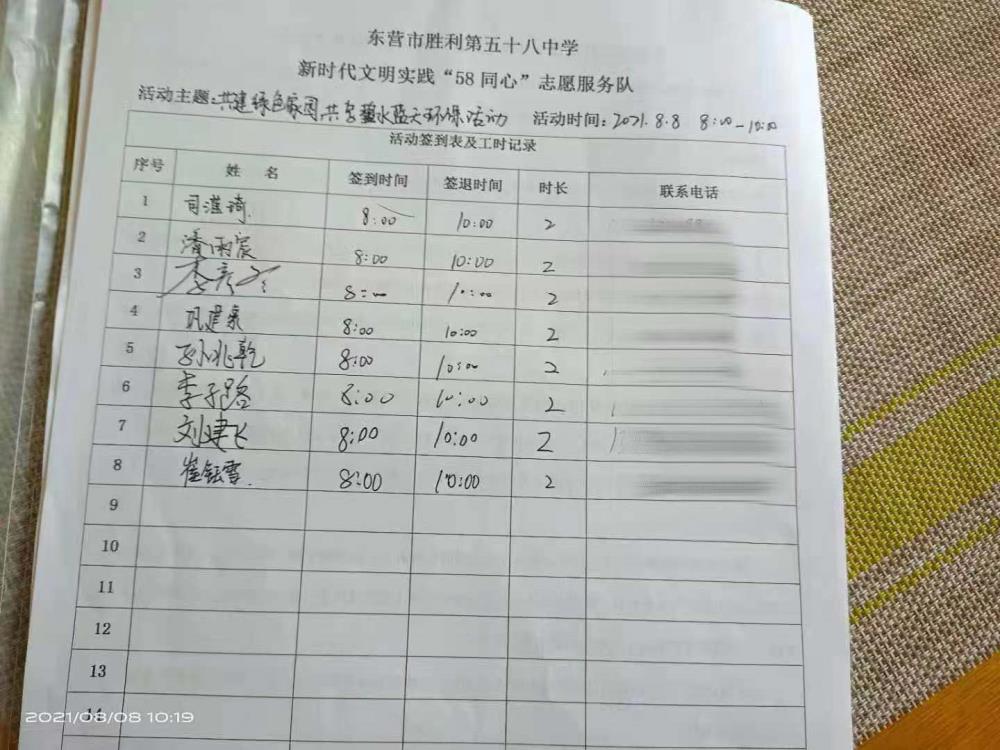 东营市胜利第五十八中学
新时代文明实践“58同心”志愿服务队
活动主题：共建绿色家园共享碧水蓝天环保活动 活动时间：2021.8.8 8:00-10:00
活动签到表及工时记录
序号 姓 名 签到时间 签退时间 时长 联系电话
1 司滢琦. 8:00 10:00 2
2 潘雨宸 8:00 10:00 2
3 李彦 8:00 10:00 2
4 巩建泉 8:00 10:00 2
5 孙兆乾 8:00 10:00 2
6 李子路 8:00 10:00 2
7 刘建飞 8:00 10:00 2
8 崔钰雪. 8:00 10:00 2
9
10
11
12
13
14
2021/08/08 10:19